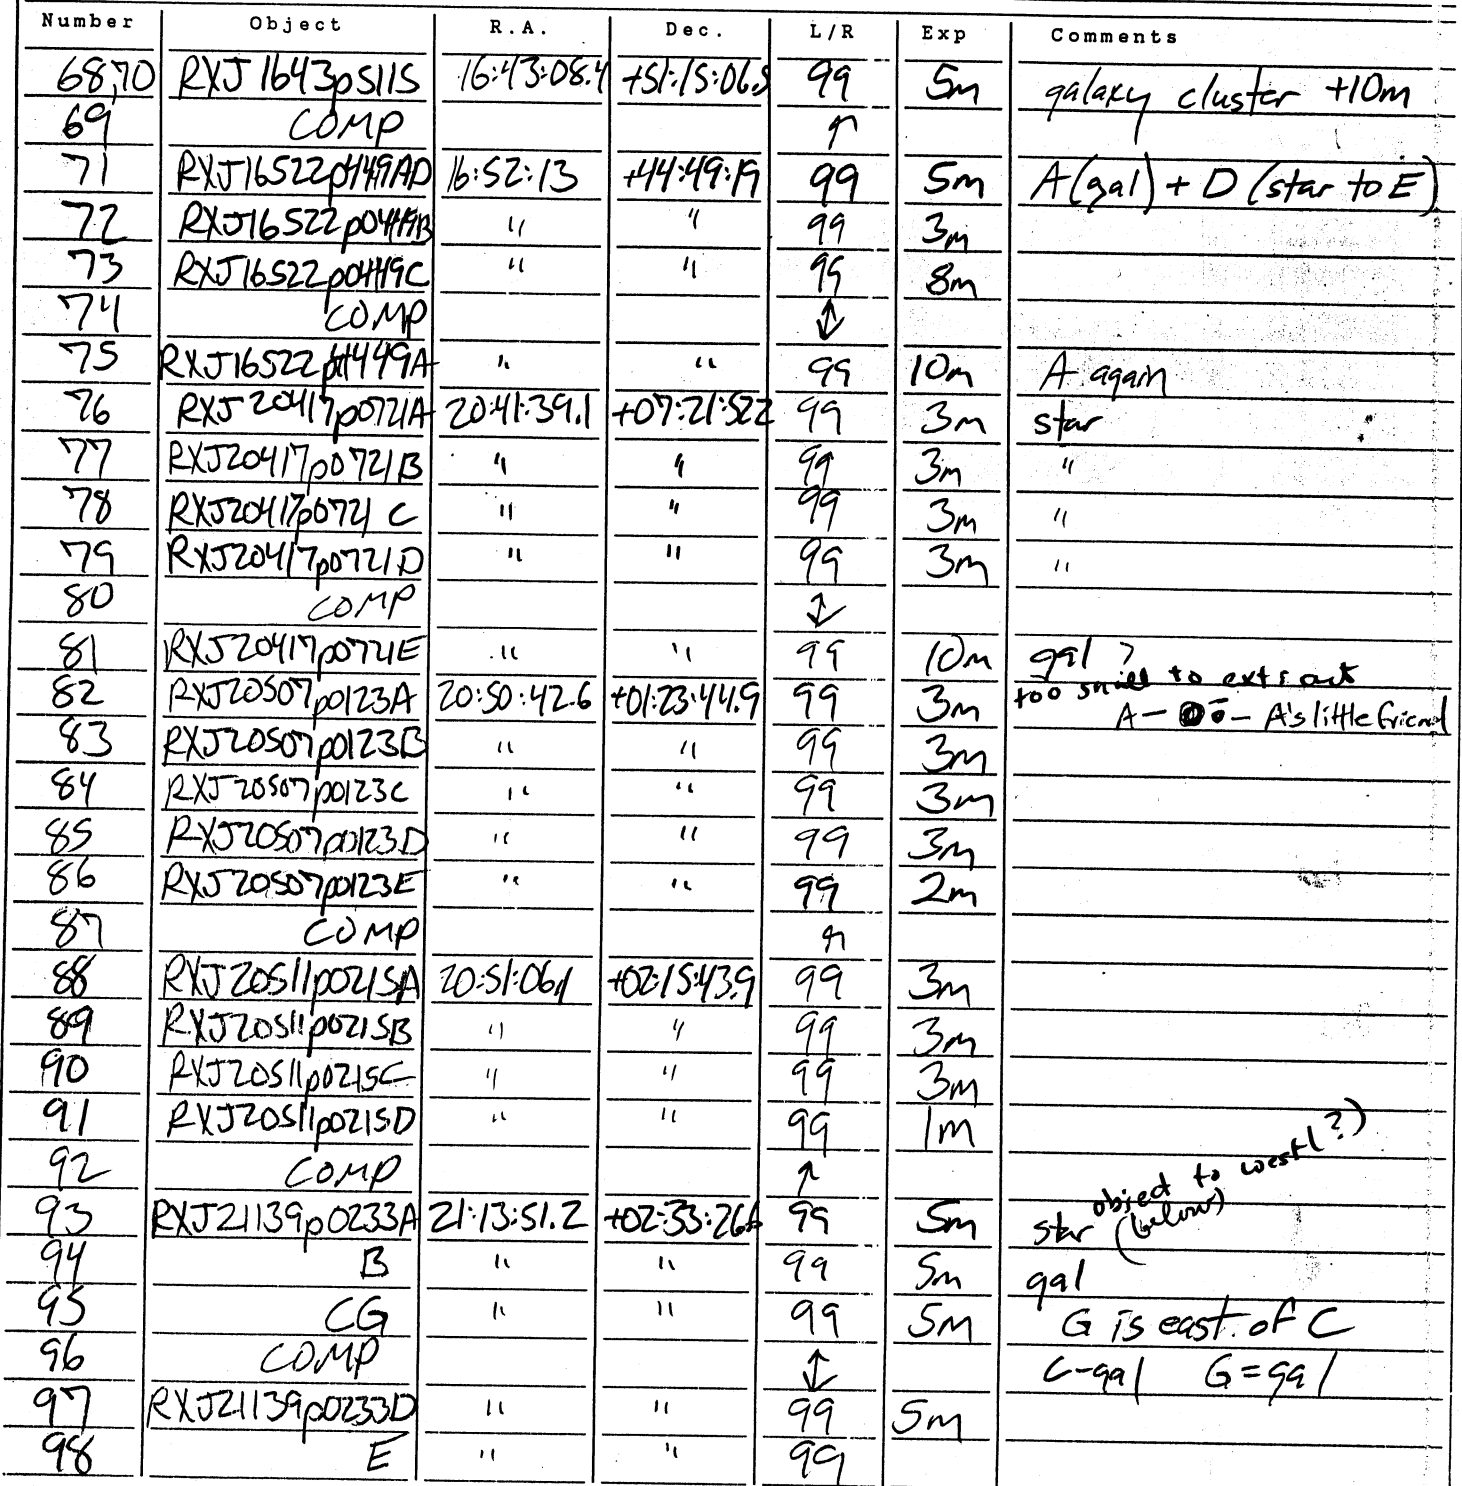 Number Object R.A. Dec. L/R Exp Comments
68,70 RXJ1643p5115 16:43:08.4 +51:15:06.5 99 5m galaxy cluster +10m
69 COMP ↑
71 RXJ16522p4449AD 16:52:13 +44:49:19 99 5m A(gal) + D (star to E)
72 RXJ16522p04449B " " 99 3m
73 RXJ16522p04449C " " 99 8m
74 COMP ↕
75 RXJ16522p4449A " " 99 10m A again
76 RXJ20417p0721A 20:41:39.1 +07:21:522 99 3m star
77 RXJ20417p0721B " " 99 3m "
78 RXJ20417p0721C " " 99 3m "
79 RXJ20417p0721D " " 99 3m "
80 COMP ↕
81 RXJ20417p0721E " " 99 10m gal ?
too small to extract
82 RXJ20507p0123A 20:50:42.6 +01:23:44.9 99 3m A - - A's little friend
83 RXJ20507p0123B " " 99 3m
84 RXJ20507p0123C " " 99 3m
85 RXJ20507p0123D " " 99 3m
86 RXJ20507p0123E " " 99 2m
87 COMP ↑
88 RXJ20511p0215A 20:51:06.1 +02:15:43.9 99 3m
89 RXJ20511p0215B " " 99 3m
90 RXJ20511p0215C " " 99 3m
91 RXJ20511p0215D " " 99 1m
92 COMP ↑
93 RXJ21139p0233A 21:13:51.2 +02:33:26.6 99 5m star object to west(?)
(below)
94 B " " 99 5m gal
95 CG " " 99 5m G is east of C
96 COMP ↕ C-gal G=gal
97 RXJ21139p0233D " " 99 5m
98 E " " 99